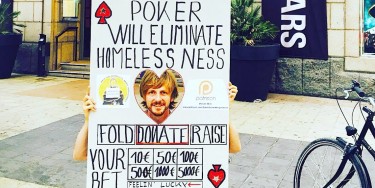 POKER
WILL ELIMINATE
HOMELESSNESS
patreon
FOLD DONATE RAISE
YOUR
BET
10€ 50€ 100€
500€ 1000€ 5000€
FEELIN' LUCKY
ARS